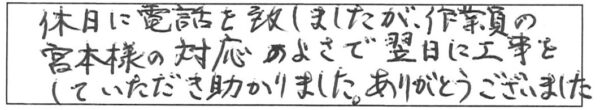 休日に電話を致しましたが、作業員の
宮本様の対応のよさで翌日に工事を
していただき助かりました。ありがとうございました